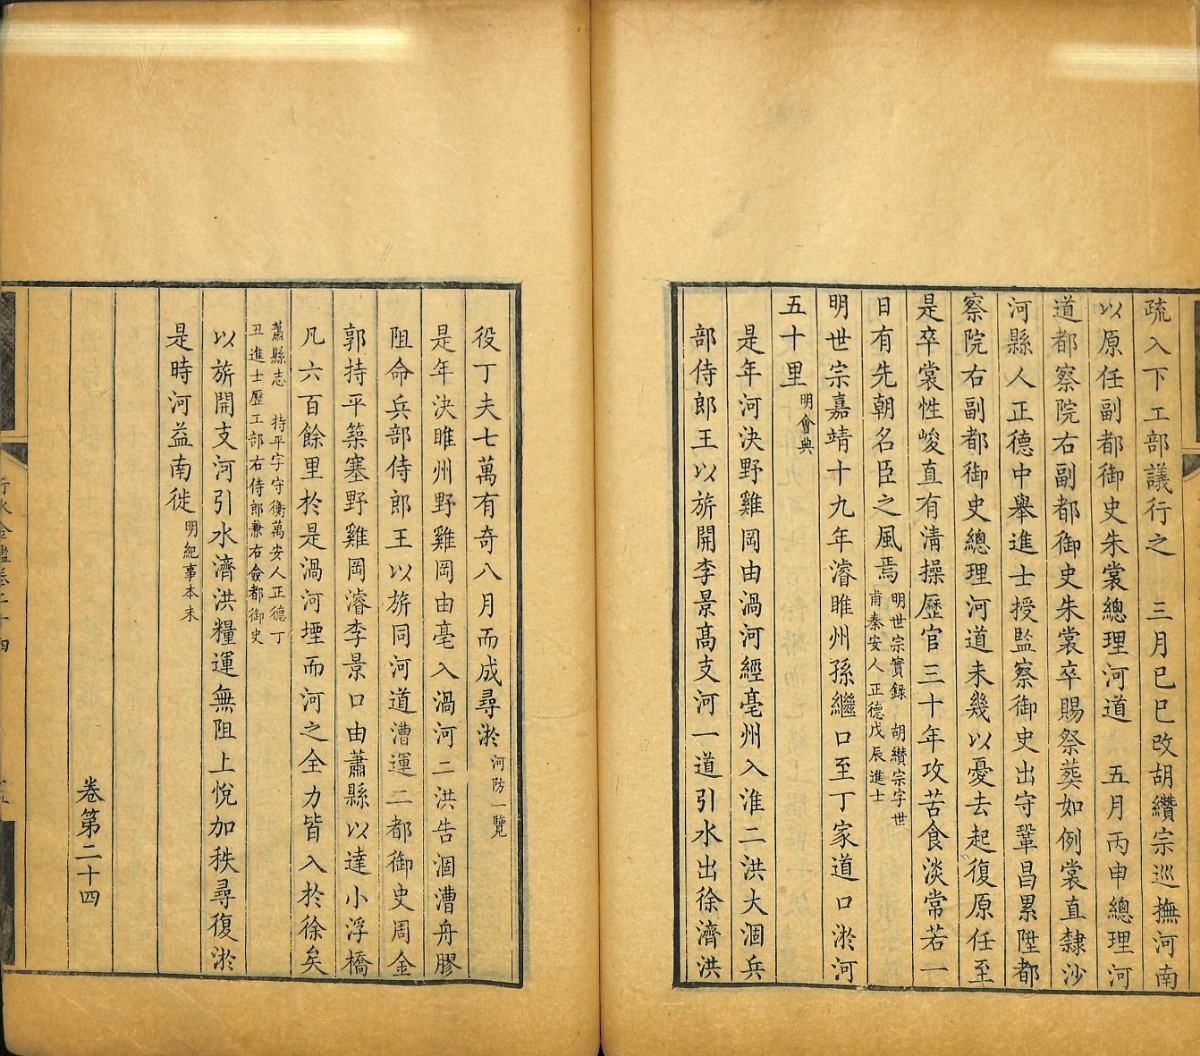 疏入下工部議行之　三月己巳改胡纘宗巡撫河南
以原任副都御史朱裳總理河道　五月丙申總理河
道都察院右副都御史朱裳卒賜祭葬如例裳直隸沙
河縣人正德中舉進士授監察御史出守鞏昌累陞都
察院右副都御史總理河道未幾以憂去起復原任至
是卒裳性峻直有清操歷官三十年攻苦食淡常若一
日有先朝名臣之風焉明世宗實錄　胡纘宗字世
甫秦安人正德戊辰進士
明世宗嘉靖十九年濬睢州孫繼口至丁家道口淤河
五十里明會典
是年河決野雞岡由渦河經亳州入淮二洪大涸兵
部侍郎王以旂開李景高支河一道引水出徐濟洪
役丁夫七萬有奇八月而成尋淤河防一覽
是年決睢州野雞岡由亳入渦河二洪告涸漕舟膠
阻命兵部侍郎王以旂同河道漕運二都御史周金
郭持平築塞野雞岡濬李景口由蕭縣以達小浮橋
凡六百餘里於是渦河堙而河之全力皆入於徐矣
蕭縣志　持平字守衡萬安人正德丁
丑進士歷工部右侍郎兼右僉都御史
以旂開支河引水濟洪糧運無阻上悅加秩尋復淤
是時河益南徙明紀事本末
卷第二十四